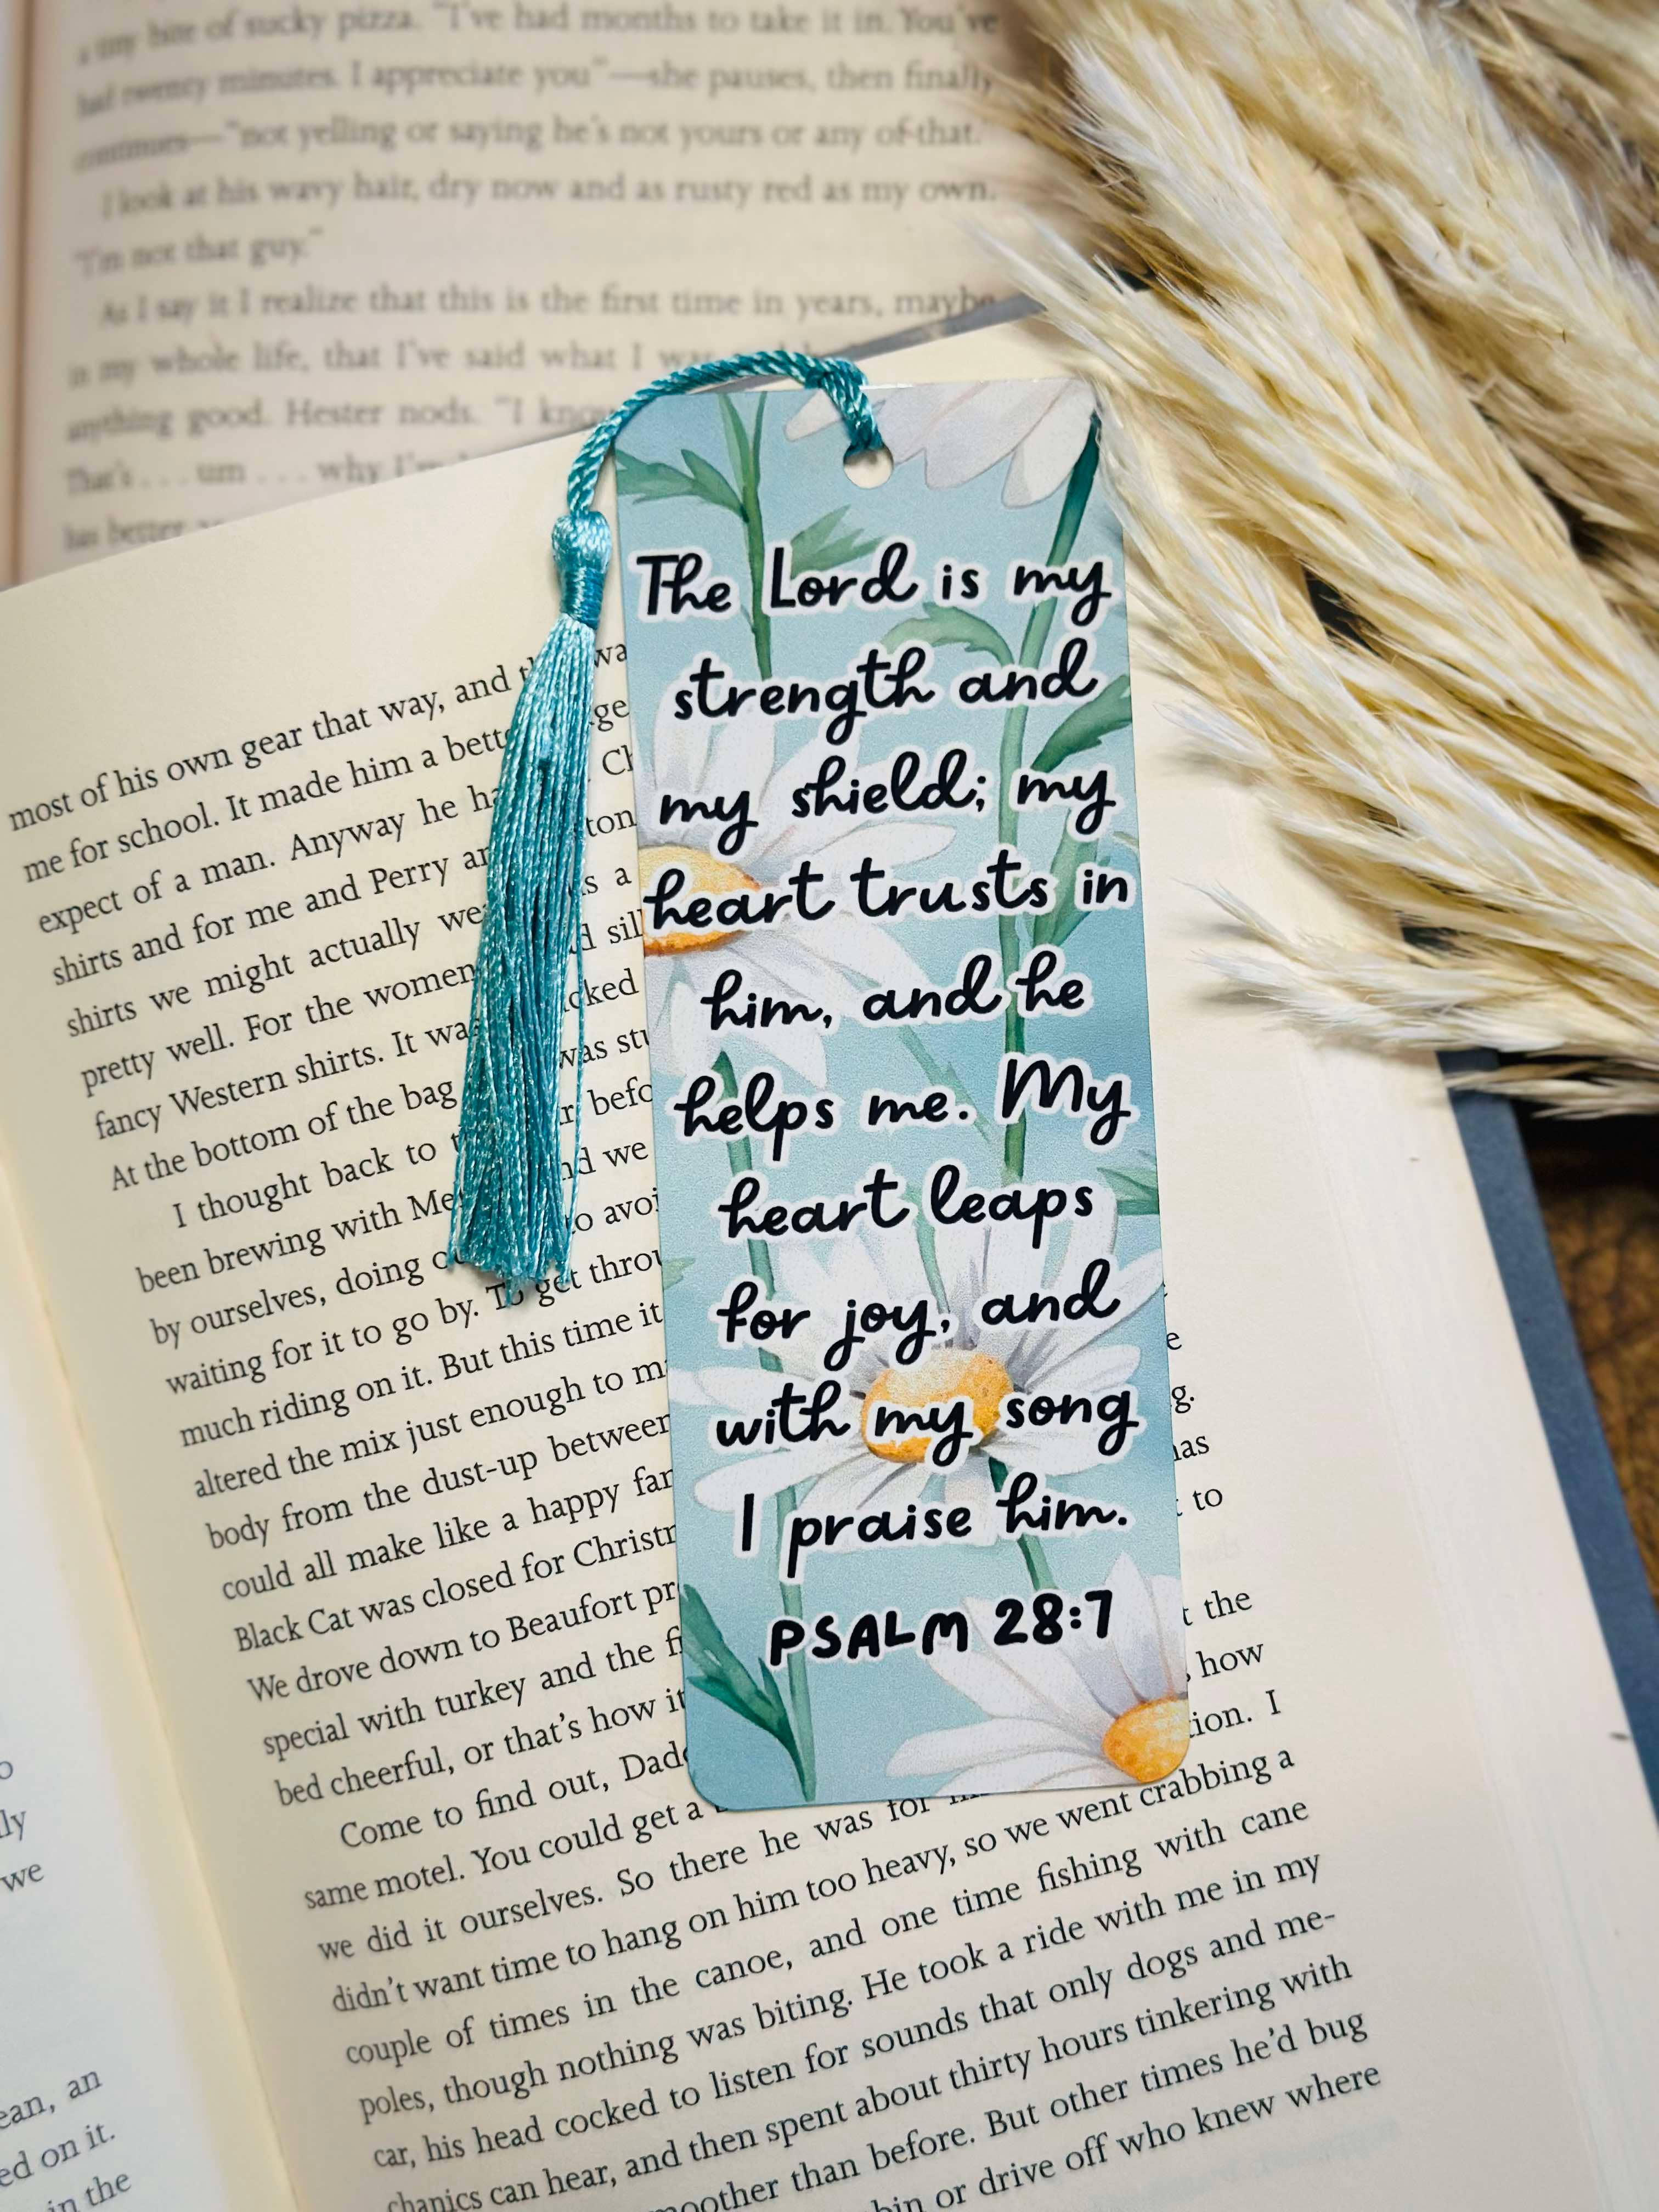 a tiny bite of sucky pizza. "I've had months to take it in. You've
had twenty minutes. I appreciate you"—she pauses, then finally
continues—"not yelling or saying he's not yours or any of that."
I look at his wavy hair, dry now and as rusty red as my own.
"I'm not that guy."
As I say it I realize that this is the first time in years, maybe
in my whole life, that I've said what I
anything good. Hester nods. "I
That's . . . um . . . why
has better
The Lord is my
strength and
my shield; my
heart trusts in
him, and he
helps me. My
heart leaps
for joy, and
with my song
I praise him.
PSALM 28:7
most of his own gear that way, and
me for school. It made him a
expect of a man. Anyway he
shirts and for me and Perry
shirts we might actually
pretty well. For the women
fancy Western shirts. It
At the bottom of the bag
I thought back to
been brewing with
by ourselves, doing
waiting for it to go by. To get
much riding on it. But this time it
altered the mix just enough to
body from the dust-up between
could all make like a happy
Black Cat was closed for
We drove down to Beaufort
special with turkey and the
bed cheerful, or that's how it
Come to find out,
same motel. You could get a
we did it ourselves. So there he was for
didn't want time to hang on him too heavy, so we went crabbing a
couple of times in the canoe, and one time fishing with cane
poles, though nothing was biting. He took a ride with me in my
car, his head cocked to listen for sounds that only dogs and me-
chanics can hear, and then spent about thirty hours tinkering with
than before. But other times he'd bug
or drive off who knew where
to
the
how
I
we
an
ed on it.
in the